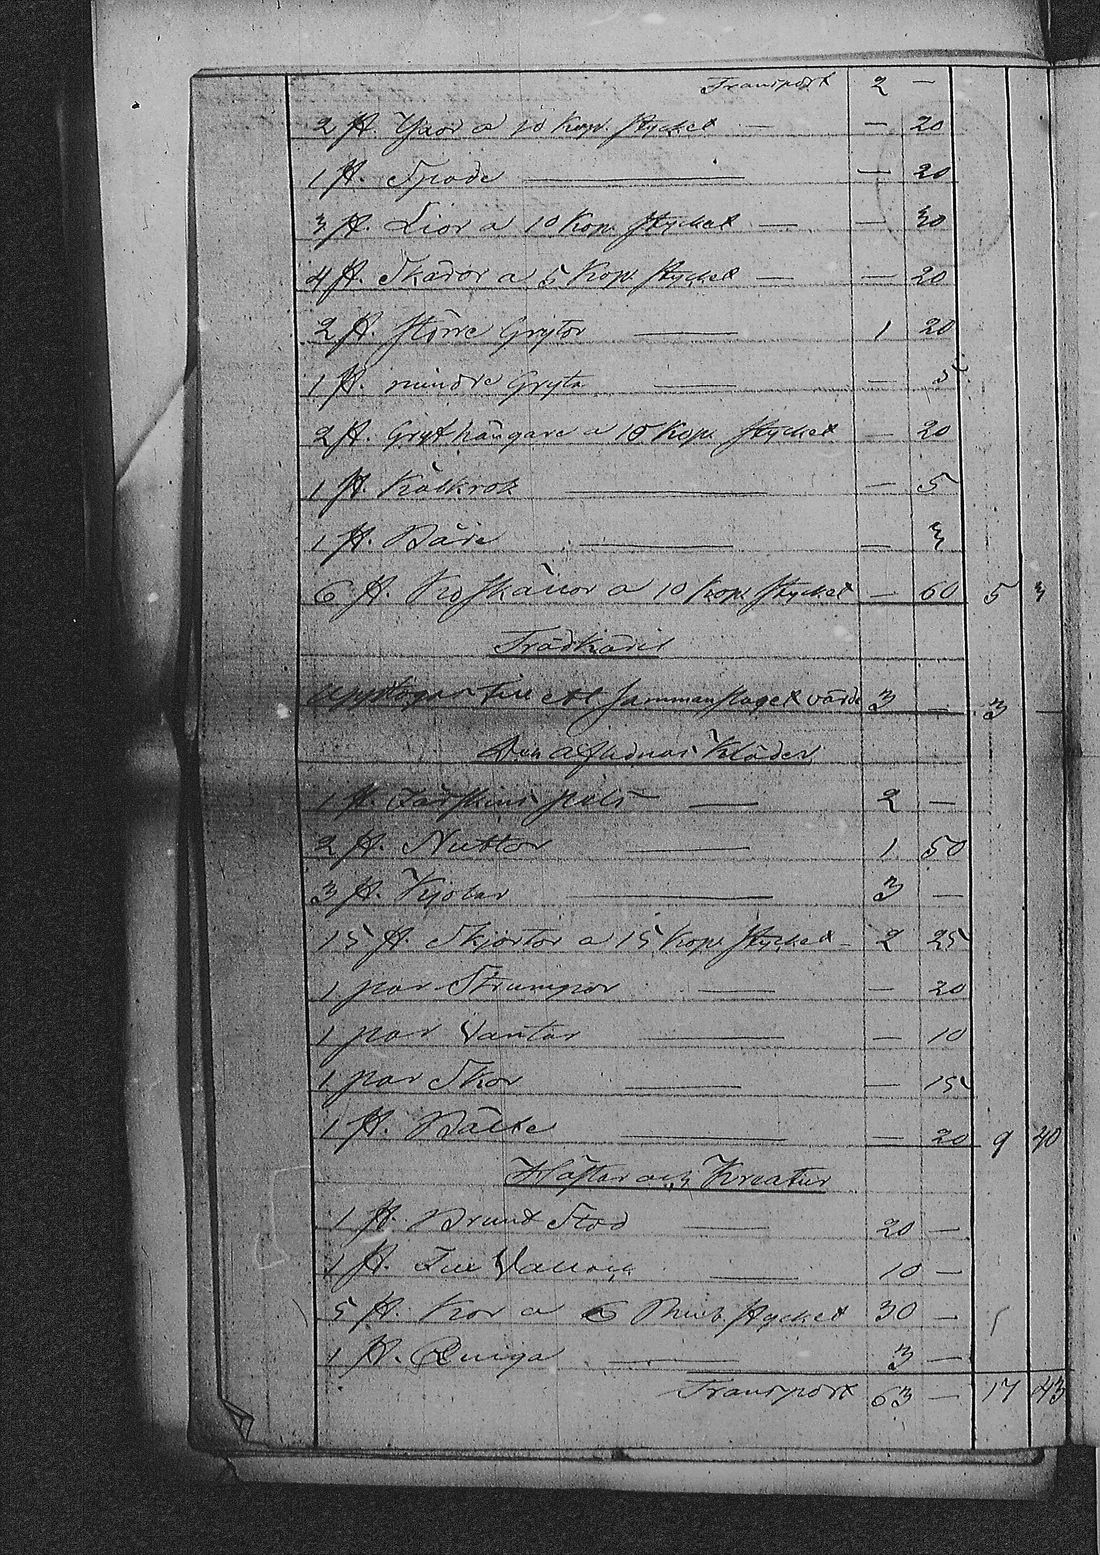 Transport 2 —
2 st. Yxor a 10 kop. stycket — — 20
1 st. Spade — — 20
3 st. Lior a 10 kop. stycket — — 30
4 st. Skäror a 5 kop. stycket — — 20
2 st. större Grytor — 1 20
1 st. mindre Gryta — — 5
2 st. Gryt hängare a 10 kop. stycket — 20
1 st. Kålkrok — — 5
1 st. — — 3
6 st. Ko skällor a 10 kop. stycket — 60 5 3
Trädkäril
Upptogos till ett sammanslaget värde 3 — 3 —
Den Kläder
1 st. Fårskins pels — 2 —
2 st. — 1 50
3 st. Kjolar — 3 —
15 st. Skjortor a 15 kop. stycket — 2 25
1 par Strumpor — — 20
1 par Vantar — — 10
1 par Skor — — 15
1 st. Bälte — — 20 9 40
Hästar och Kreatur
1 st. Brunt Sto — 20 —
1 st. — 10 —
5 st. Kor a 6 Rub. stycket 30 —
1 st. Quiga — 3 —
Transport 63 — 17 43